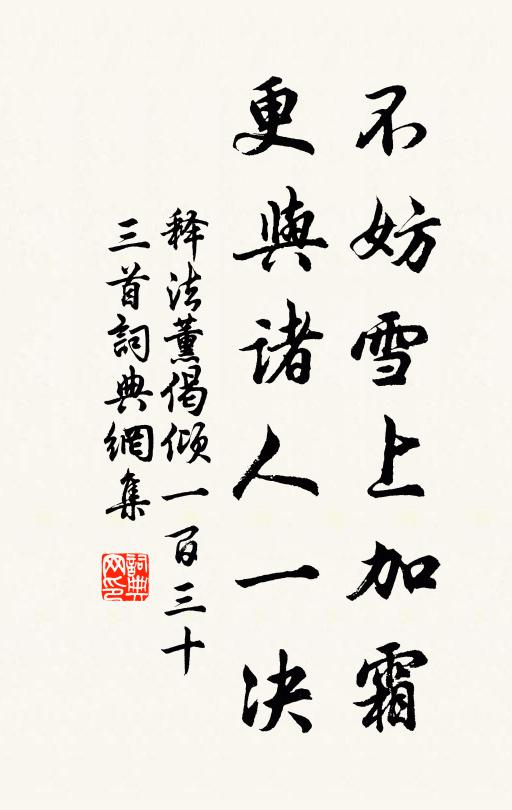 不妨雪上加霜
更與诸人一决
释法薰偈倾一百三十
三首詞典網集
詞典
网印